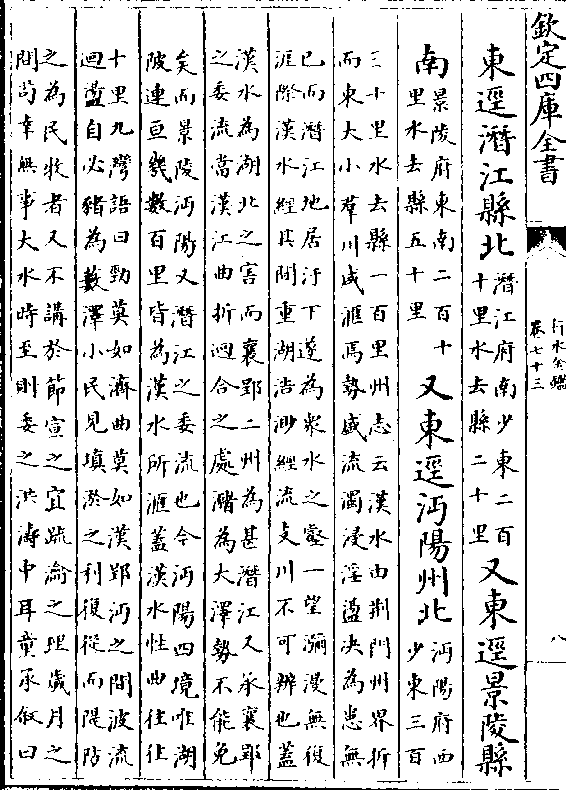 欽定四庫全書
行水金鑑
卷七十三
八
東逕潛江縣北潛江府南少東二百
十里水去縣二十里又東逕景陵縣
南景陵府東南二百十
里水去縣五十里又東逕沔陽州北沔陽府西
少東三百
三十里水去縣一百里州志云漢水由荆門州界折
而東大小羣川咸滙焉勢盛流濁浸淫盪決為患無
已而潛江地居汙下遂為衆水之壑一望瀰漫無復
涯際漢水經其間重湖浩渺經流支川不可辨也蓋
漢水為湖北之害而襄郢二州為甚潛江又承襄郢
之委流當漢江曲折迴合之處瀦為大澤勢不能免
矣而景陵沔陽又潛江之委流也今沔陽四境唯湖
陂連亘幾數百里皆為漢水所滙蓋漢水性曲往往
十里九灣語曰勁莫如濟曲莫如漢郢沔之間波流
迴盪自必豬為藪澤小民見填淤之利復從而隄防
之為民牧者又不講於節宣之宜疏瀹之理歲月之
間苟幸無事大水時至則委之洪濤中耳童承叙曰